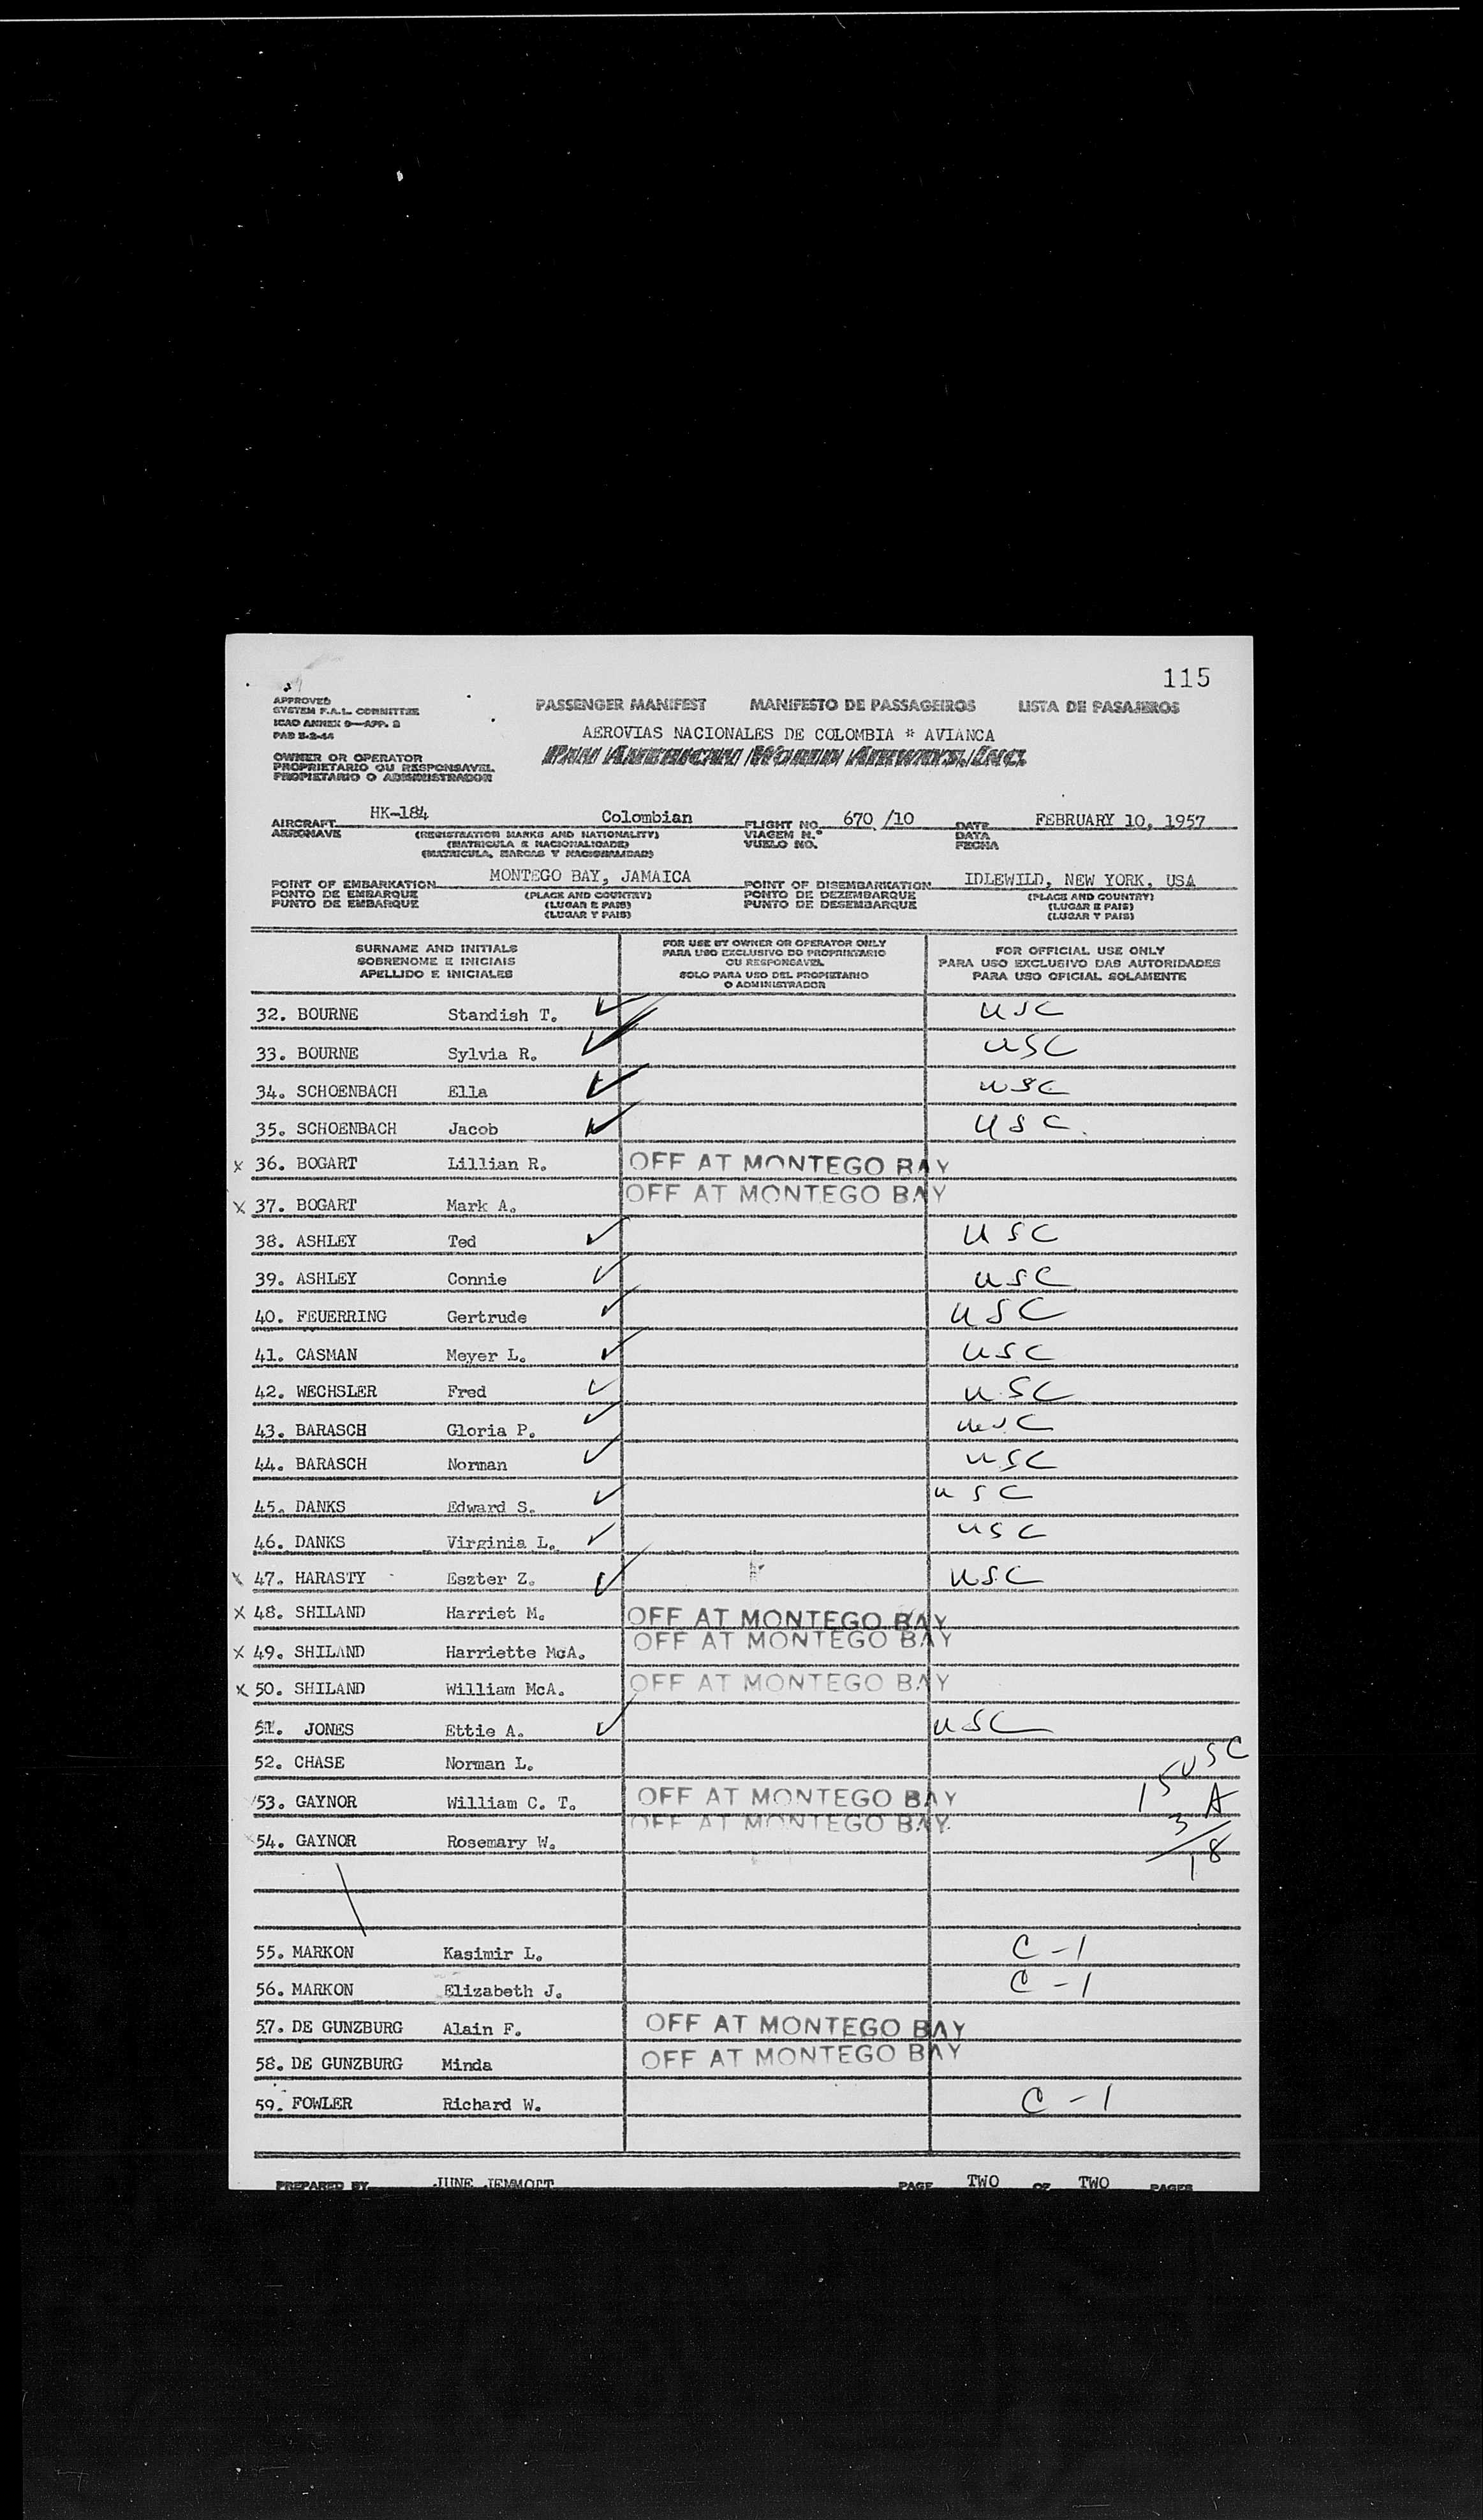 115
APPROVED
SYSTEM F.A.L. COMMITTEE
ICAO ANNEX 9—APP. 2
PAD 5-2-44
PASSENGER MANIFEST MANIFESTO DE PASSAGEIROS LISTA DE PASAJEROS
AEROVIAS NACIONALES DE COLOMBIA * AVIANCA
PAN AMERICAN WORLD AIRWAYS, INC.
OWNER OR OPERATOR
PROPRIETARIO OU RESPONSAVEL
PROPIETARIO O ADMINISTRADOR
AIRCRAFT HK-184 Colombian FLIGHT NO. 670 /10 DATE FEBRUARY 10, 1957
AERONAVE (REGISTRATION MARKS AND NATIONALITY) VIAGEM N.º DATA
(MATRICULA E NACIONALIDADE) VUELO NO. FECHA
(MATRICULA, MARCAS Y NACIONALIDAD)
POINT OF EMBARKATION MONTEGO BAY, JAMAICA POINT OF DISEMBARKATION IDLEWILD, NEW YORK, USA
PONTO DE EMBARQUE (PLACE AND COUNTRY) PONTO DE DEZEMBARQUE (PLACE AND COUNTRY)
PUNTO DE EMBARQUE (LUGAR E PAIS) PUNTO DE DESEMBARQUE (LUGAR E PAIS)
(LUGAR Y PAIS) (LUGAR Y PAIS)
SURNAME AND INITIALS
SOBRENOME E INICIAIS
APELLIDO E INICIALES
FOR USE BY OWNER OR OPERATOR ONLY
PARA USO EXCLUSIVO DO PROPRIETARIO
OU RESPONSAVEL
SOLO PARA USO DEL PROPIETARIO
O ADMINISTRADOR
FOR OFFICIAL USE ONLY
PARA USO EXCLUSIVO DAS AUTORIDADES
PARA USO OFICIAL SOLAMENTE
32. BOURNE Standish T. ✓ USC
33. BOURNE Sylvia R. ✓ USC
34. SCHOENBACH Ella ✓ USC
35. SCHOENBACH Jacob ✓ USC
x 36. BOGART Lillian R. OFF AT MONTEGO BAY
x 37. BOGART Mark A. OFF AT MONTEGO BAY
38. ASHLEY Ted ✓ USC
39. ASHLEY Connie ✓ USC
40. FEUERRING Gertrude ✓ USC
41. CASMAN Meyer L. ✓ USC
42. WECHSLER Fred ✓ USC
43. BARASCH Gloria P. ✓ USC
44. BARASCH Norman ✓ USC
45. DANKS Edward S. ✓ USC
46. DANKS Virginia L. ✓ USC
x 47. HARASTY Eszter Z. ✓ USC
x 48. SHILAND Harriet M. OFF AT MONTEGO BAY
x 49. SHILAND Harriette McA. OFF AT MONTEGO BAY
x 50. SHILAND William McA. OFF AT MONTEGO BAY
51. JONES Ettie A. ✓ USC
52. CHASE Norman L.
15 USC
53. GAYNOR William C. T. OFF AT MONTEGO BAY
3 A
54. GAYNOR Rosemary W. OFF AT MONTEGO BAY
18
55. MARKON Kasimir L. C-1
56. MARKON Elizabeth J. C-1
57. DE GUNZBURG Alain F. OFF AT MONTEGO BAY
58. DE GUNZBURG Minda OFF AT MONTEGO BAY
59. FOWLER Richard W. C-1
PREPARED BY JUNE JEMMOTT PAGE TWO OF TWO PAGES